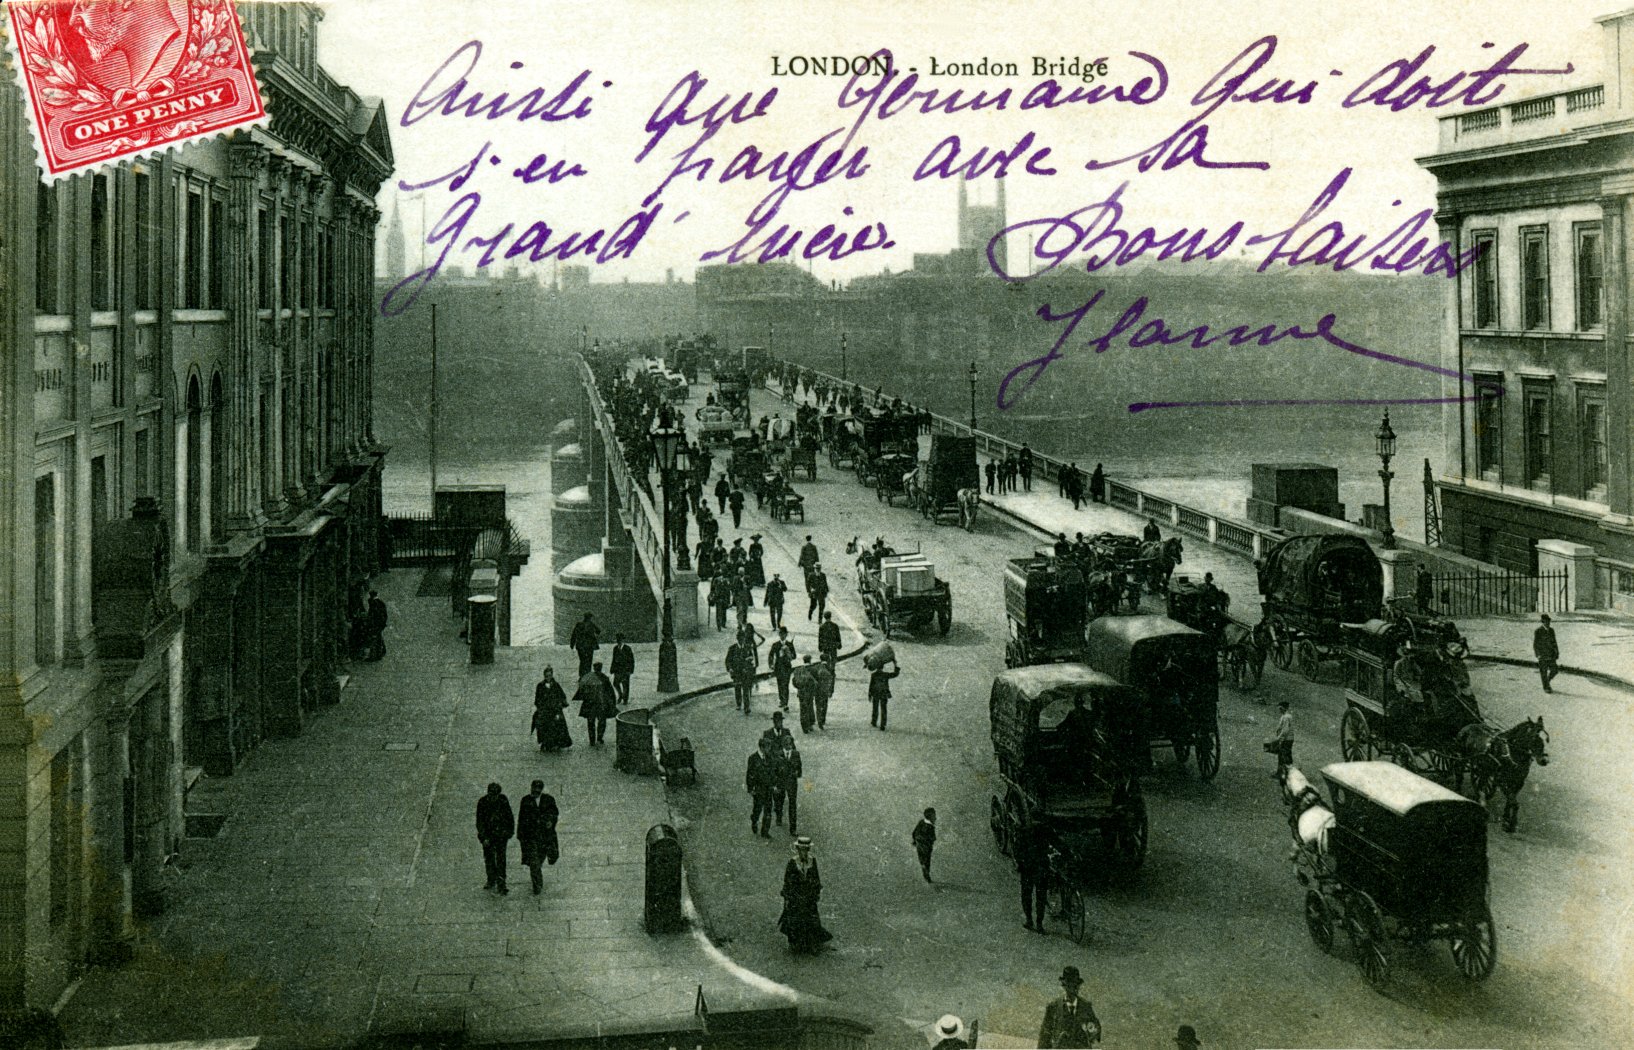 ONE PENNY
LONDON. - London Bridge
Ainsi que Germaine qui doit
s'en payer avec sa
Grand' Lucie. Bons baisers
Jeanne